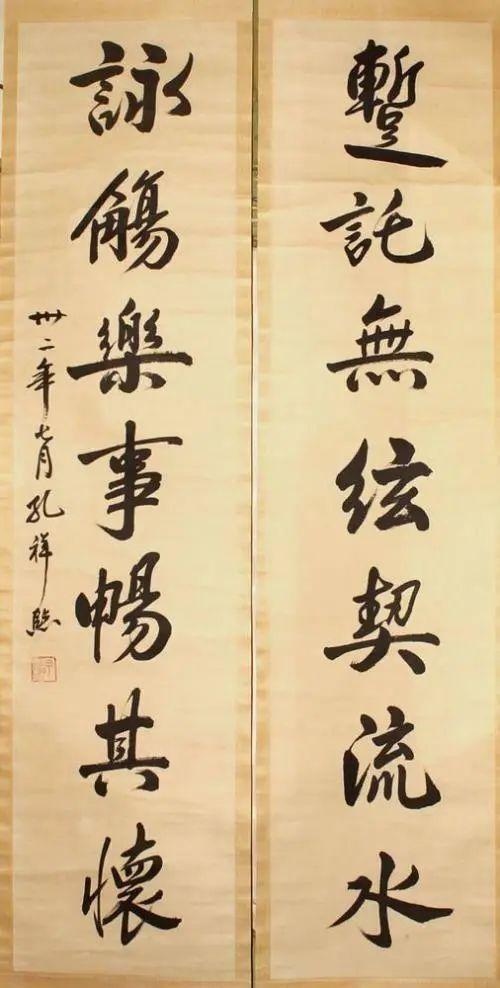 蹔託無絃契流水
詠觴樂事暢其懷
卅二年七月孔祥熙